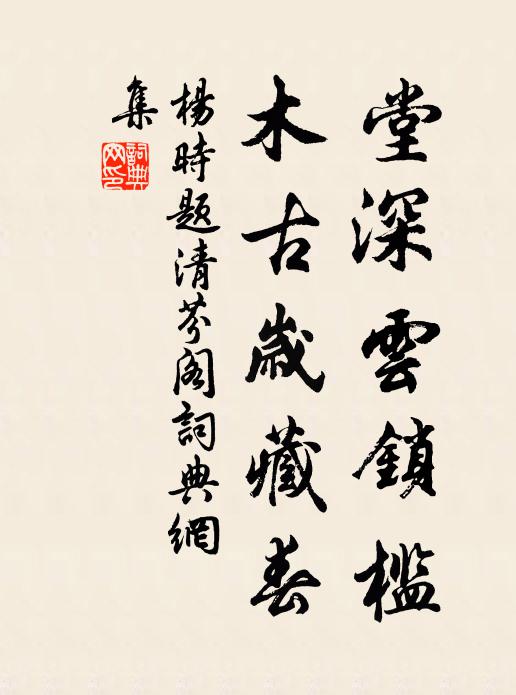 堂深雲鎖檻
木古歲藏春
楊時題清芬阁詞典網
集
詞典
网印